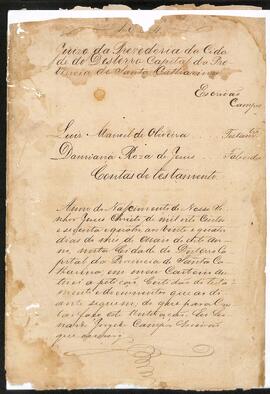 Juizo da Provedoria da Cida
de do Desterro Capital da Pro
vincia de Santa Catharina
Escrivão
Campos
Luis Manoel de Oliveira
Damiana Roza de Jesus
Contas de testamento
Anno do Nascimento de Nosso Se
nhor Jesus Christo de mil oito centos
e sessenta e quatro aos vinte e quatro
dias do mes de Maio do dito an
no nesta Cidade do Desterro Ca
pital da Provincia de Santa Ca
tharina, em meu Cartorio
a petição Certidão do testa
mento e documentos que ao di
ante seguem, do que para Cons
tar faço esta
Campos Escrivão
que escrevi